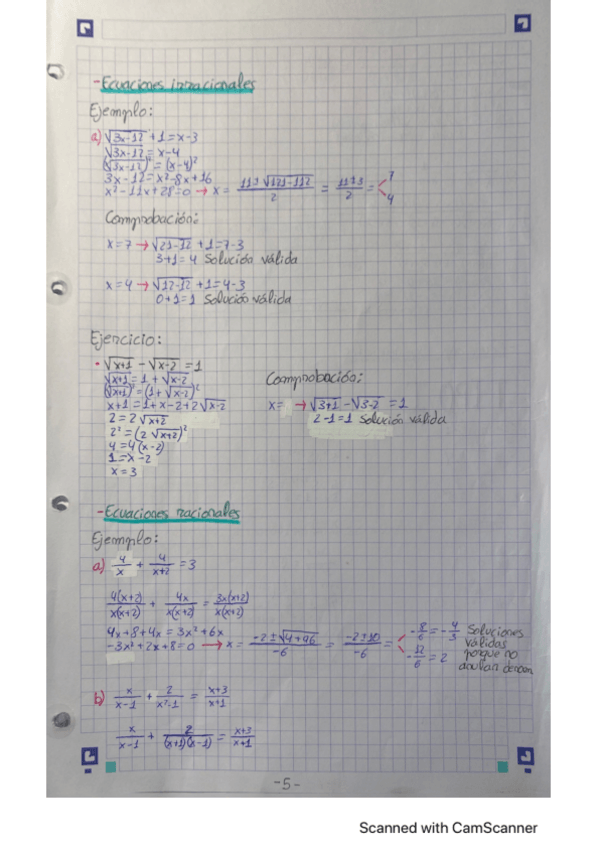 - Ecuaciones irracionales
Ejemplo:
a) √3x-12 + 1 = x-3
√3x-12 = x-4
(√3x-12)² = (x-4)²
3x-12 = x²-8x+16
x²-11x+28=0 → x = (11±√121-112)/2 = (11±3)/2 = 7 4
Comprobación:
x=7 → √21-12 + 1 = 7-3
3+1=4 Solución válida
x=4 → √12-12 + 1 = 4-3
0+1=1 Solución válida
Ejercicio:
• √x+1 - √x-2 = 1
√x+1 = 1 + √x-2
(√x+1)² = (1+√x-2)²
x+1 = 1+x-2+2√x-2
2 = 2√x+2
2² = (2√x+2)²
4 = 4(x-2)
1 = x-2
x = 3
Comprobación:
x= → √3+1 - √3-2 = 1
2-1=1 Solución válida
- Ecuaciones racionales
Ejemplo:
a) 4/x + 4/x+2 = 3
4(x+2)/x(x+2) + 4x/x(x+2) = 3x(x+2)/x(x+2)
4x+8+4x = 3x²+6x
-3x²+2x+8=0 → x = (-2±√4+96)/-6 = (-2±10)/-6 = -8/6 = -4/3 -12/6 = 2
Soluciones
válidas
porque no
anulan denom
b) x/x-1 + 2/x²-1 = x+3/x+1
x/x-1 + 2/(x+1)(x-1) = x+3/x+1
-5-
Scanned with CamScanner